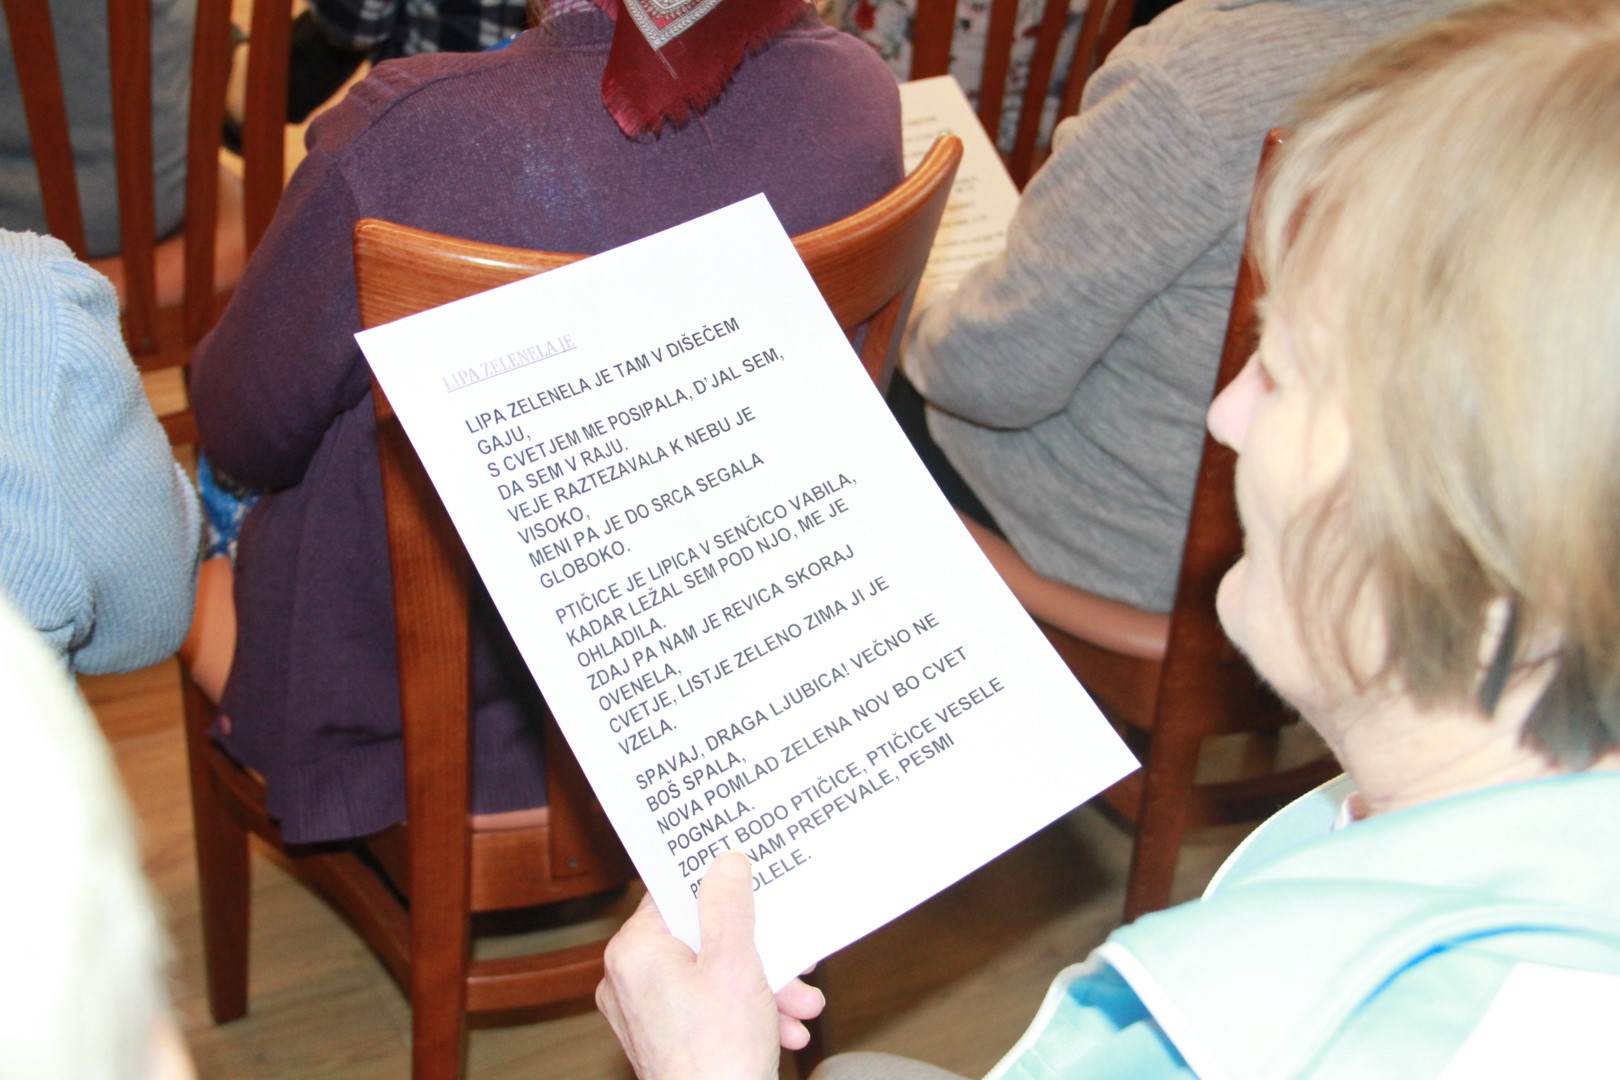 LIPA ZELENELA JE
LIPA ZELENELA JE TAM V DIŠEČEM
GAJU,
S CVETJEM ME POSIPALA, D'JAL SEM,
DA SEM V RAJU.
VEJE RAZTEZAVALA K NEBU JE
VISOKO,
MENI PA JE DO SRCA SEGALA
GLOBOKO.
PTIČICE JE LIPICA V SENČICO VABILA,
KADAR LEŽAL SEM POD NJO, ME JE
OHLADILA.
ZDAJ PA NAM JE REVICA SKORAJ
OVENELA,
CVETJE, LISTJE ZELENO ZIMA JI JE
VZELA.
SPAVAJ, DRAGA LJUBICA! VEČNO NE
BOŠ SPALA,
NOVA POMLAD ZELENA NOV BO CVET
POGNALA.
ZOPET BODO PTIČICE, PTIČICE VESELE
NAM PREPEVALE, PESMI